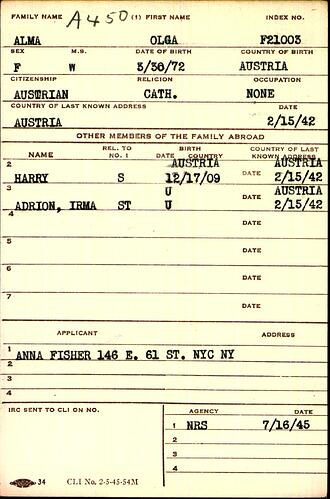 FAMILY NAME A450 (1) FIRST NAME INDEX NO.
ALMA OLGA F21003
SEX M.S. DATE OF BIRTH COUNTRY OF BIRTH
F W 5/38/72 AUSTRIA
CITIZENSHIP RELIGION OCCUPATION
AUSTRIAN CATH. NONE
COUNTRY OF LAST KNOWN ADDRESS DATE
AUSTRIA 2/15/42
OTHER MEMBERS OF THE FAMILY ABROAD
NAME REL. TO NO. 1 BIRTH DATE COUNTRY COUNTRY OF LAST KNOWN ADDRESS
2 AUSTRIA AUSTRIA
HARRY S 12/17/09 DATE 2/15/42
3 U AUSTRIA
ADRION, IRMA ST U DATE 2/15/42
4
DATE
5
DATE
6
DATE
7
DATE
APPLICANT ADDRESS
1 ANNA FISHER 146 E. 61 ST. NYC NY
2
3
4
IRC SENT TO CLI ON NO. AGENCY DATE
1 NRS 7/16/45
2
3
4
34 CLI No. 2-5-45-54M